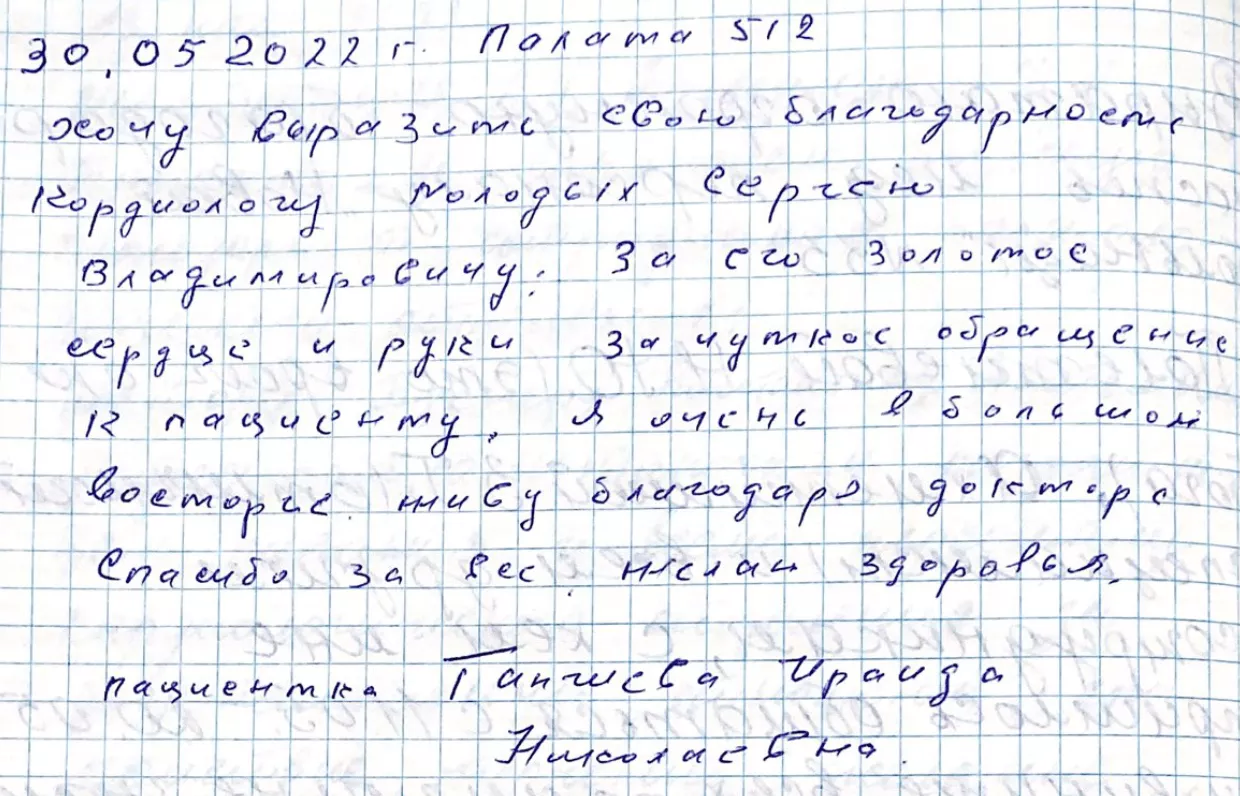 30.05 2022 г. Палата 512
Хочу выразить свою благодарность
Кордиологу Молодых Сергею
Владимировичу: За его золотое
сердце и руки за чуткое обращение
к пациенту. Я очень в большом
восторге. живу благодаря доктора
Спасибо за все. желаю здоровья.
пациентка Ираида
Николаевна.